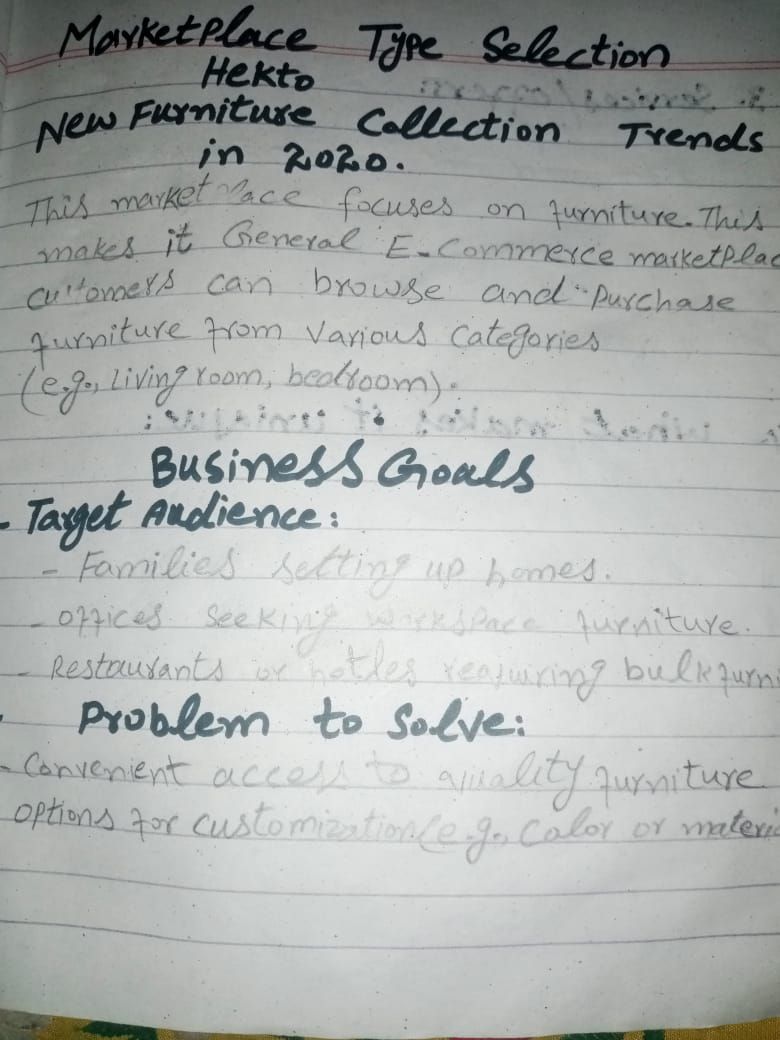 Marketplace Type Selection
Hekto
New Furniture Collection Trends
in 2020.
This marketplace focuses on furniture. This
makes it General E-Commerce marketplac
customers can browse and purchase
furniture from various categories
(e.g., living room, bedroom).
Business Goals
- Target Audience:
- Families setting up homes.
- offices seeking workspace furniture.
- Restaurants or hotles requiring bulk furni
Problem to Solve:
- Convenient access to quality furniture
options for customization (e.g., Color or materia